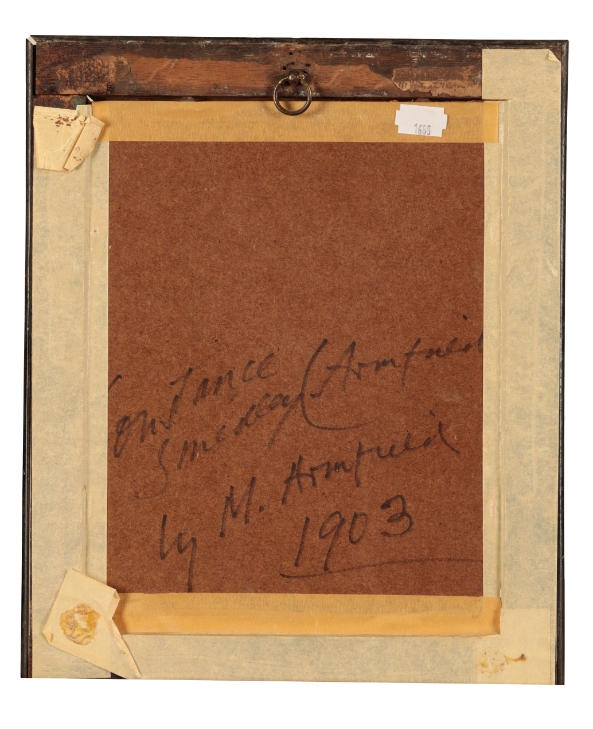 1665
Constance
Smedley (Armfield
by M. Armfield
1903